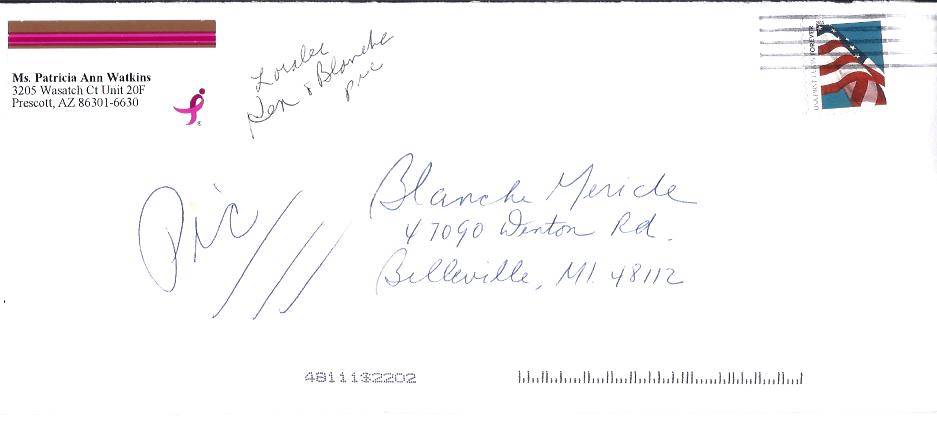 Ms. Patricia Ann Watkins
3205 Wasatch Ct Unit 20F
Prescott, AZ 86301-6630
Loralee
Ken & Blanche
pic
USA FIRST-CLASS FOREVER
Pic
Blanche Mericle
47090 Denton Rd.
Belleville, MI. 48112
48111$2202